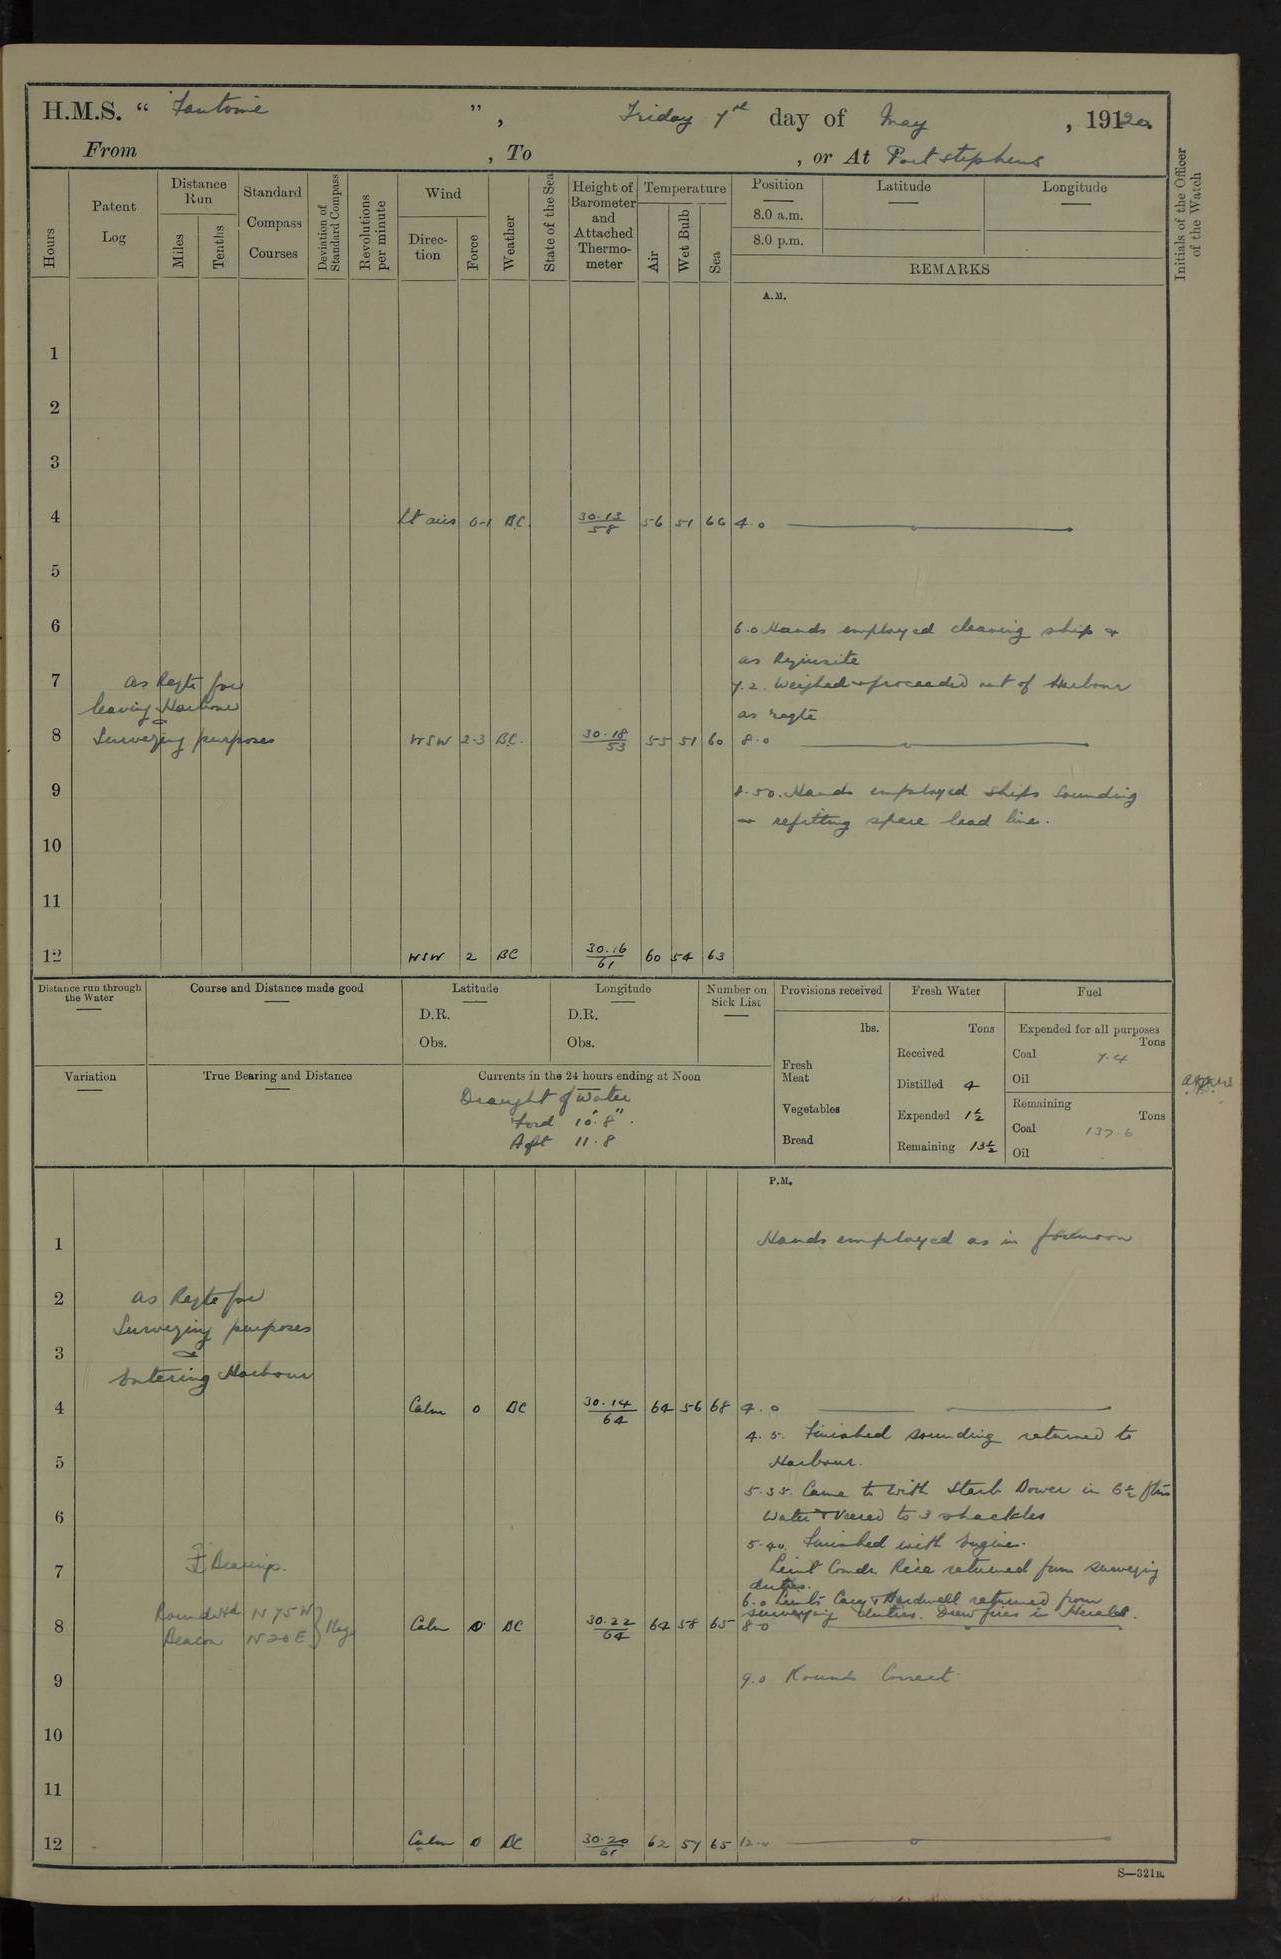 H.M.S. " Fantome " , Friday 7th day of May , 1920
From , To , or At Port Stephens
Hours
Patent Log
Distance Run
Miles
Tenths
Standard Compass Courses
Deviation of Standard Compass
Revolutions per minute
Wind
Direction
Force
Weather
State of the Sea
Height of Barometer and Attached Thermometer
Temperature
Air
Wet Bulb
Sea
Position
8.0 a.m.
8.0 p.m.
Latitude
Longitude
REMARKS
Initials of the Officer of the Watch
A.M.
1
2
3
4 Lt airs 0-1 BC. 30.13/58 56 51 66 4.0
5
6 6.0 Hands employed cleaning ship &
as Requisite
7 as Reqte for 7.2. Weighed & proceeded out of Harbour
leaving Harbour as reqte
&
8 Surveying purposes WSW 2-3 BC. 30.18/53 55 51 60 8.0
9 8.50. Hands employed Ships Sounding
& refitting spare lead line.
10
11
12 WSW 2 BC 30.16/61 60 54 63
Distance run through the Water
Course and Distance made good
Latitude
D.R.
Obs.
Longitude
D.R.
Obs.
Number on Sick List
Provisions received
lbs.
Fresh Meat
Vegetables
Bread
Fresh Water
Tons
Received
Distilled 4
Expended 1½
Remaining 13½
Fuel
Expended for all purposes
Tons
Coal 7.4
Oil
Remaining
Tons
Coal 137.6
Oil
Variation
True Bearing and Distance
Currents in the 24 hours ending at Noon
Draught of Water
Ford 10' 8".
Aft 11.8
P.M.
1 Hands employed as in forenoon
2 as Reqte for
Surveying purposes
3 &
Entering Harbour
4 Calm 0 BC 30.14/64 64 56 68 4.0
4.5. Finished sounding returned to
5 Harbour.
5.35. Came to with Starb Bower in 6½ fms
6 Water & Veered to 3 shackles
5.40. Finished with Engine.
7 Bearings. Lieut Comdr Rice returned from surveying
duties.
6.0 Lieuts Cary & Hardwell returned from
Round Hd N 75 W surveying duties. Drew fires in Herald.
8 Beacon N 20 E } Mag Calm 0 BC 30.22/64 64 58 65 8.0
9 9.0 Rounds Correct
10
11
12 Calm 0 BC 30.20/61 62 57 65 12.0
S—321B.